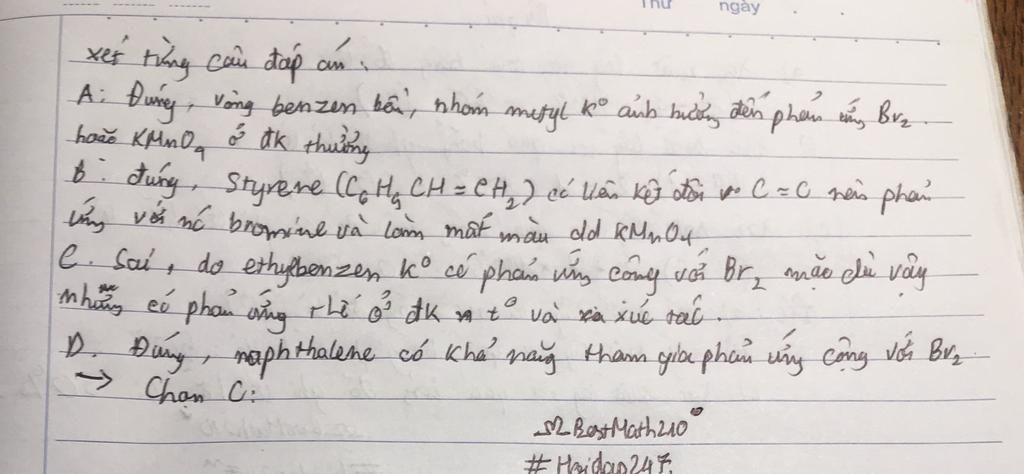 Thứ ngày
xét từng câu đáp án:
A: Đúng, vòng benzen bền, nhóm metyl k° ảnh hưởng đến phản ứng Br₂.
hoặc KMnO₄ ở đk thường
B: đúng, Styrene (C₆H₅CH=CH₂) có liên kết đôi C=C nên phản
ứng với nó bromine và làm mất màu dd KMnO₄
C. Sai, do ethylbenzen k° có phản ứng cộng với Br₂ mặc dù vậy
nhưng có phản ứng thế ở đk t° và xúc tác.
D. Đúng, naphthalene có khả năng tham gia phản ứng cộng với Br₂
→ Chọn C:
BestMath210
#Hoidap247.